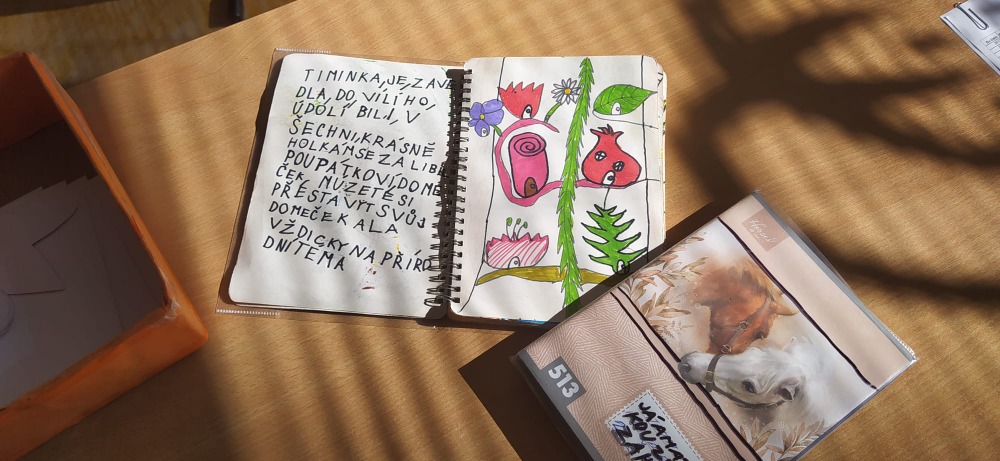 TIMINKA,JE,ZAVE
DLA,DO,VÍLÍHO,
ÚDOLÍ BILI, V
ŠECHNI,KRÁSNĚ
HOLKÁM SE ZA LIBI
POUPÁTKOVÍ DOME
ČEK MUZETE SI
PŘESTAVÝT SVŮJ
DOMEČEK ALA
VŽDICKY NA PŘÍRO
DNÍ TEMA
513